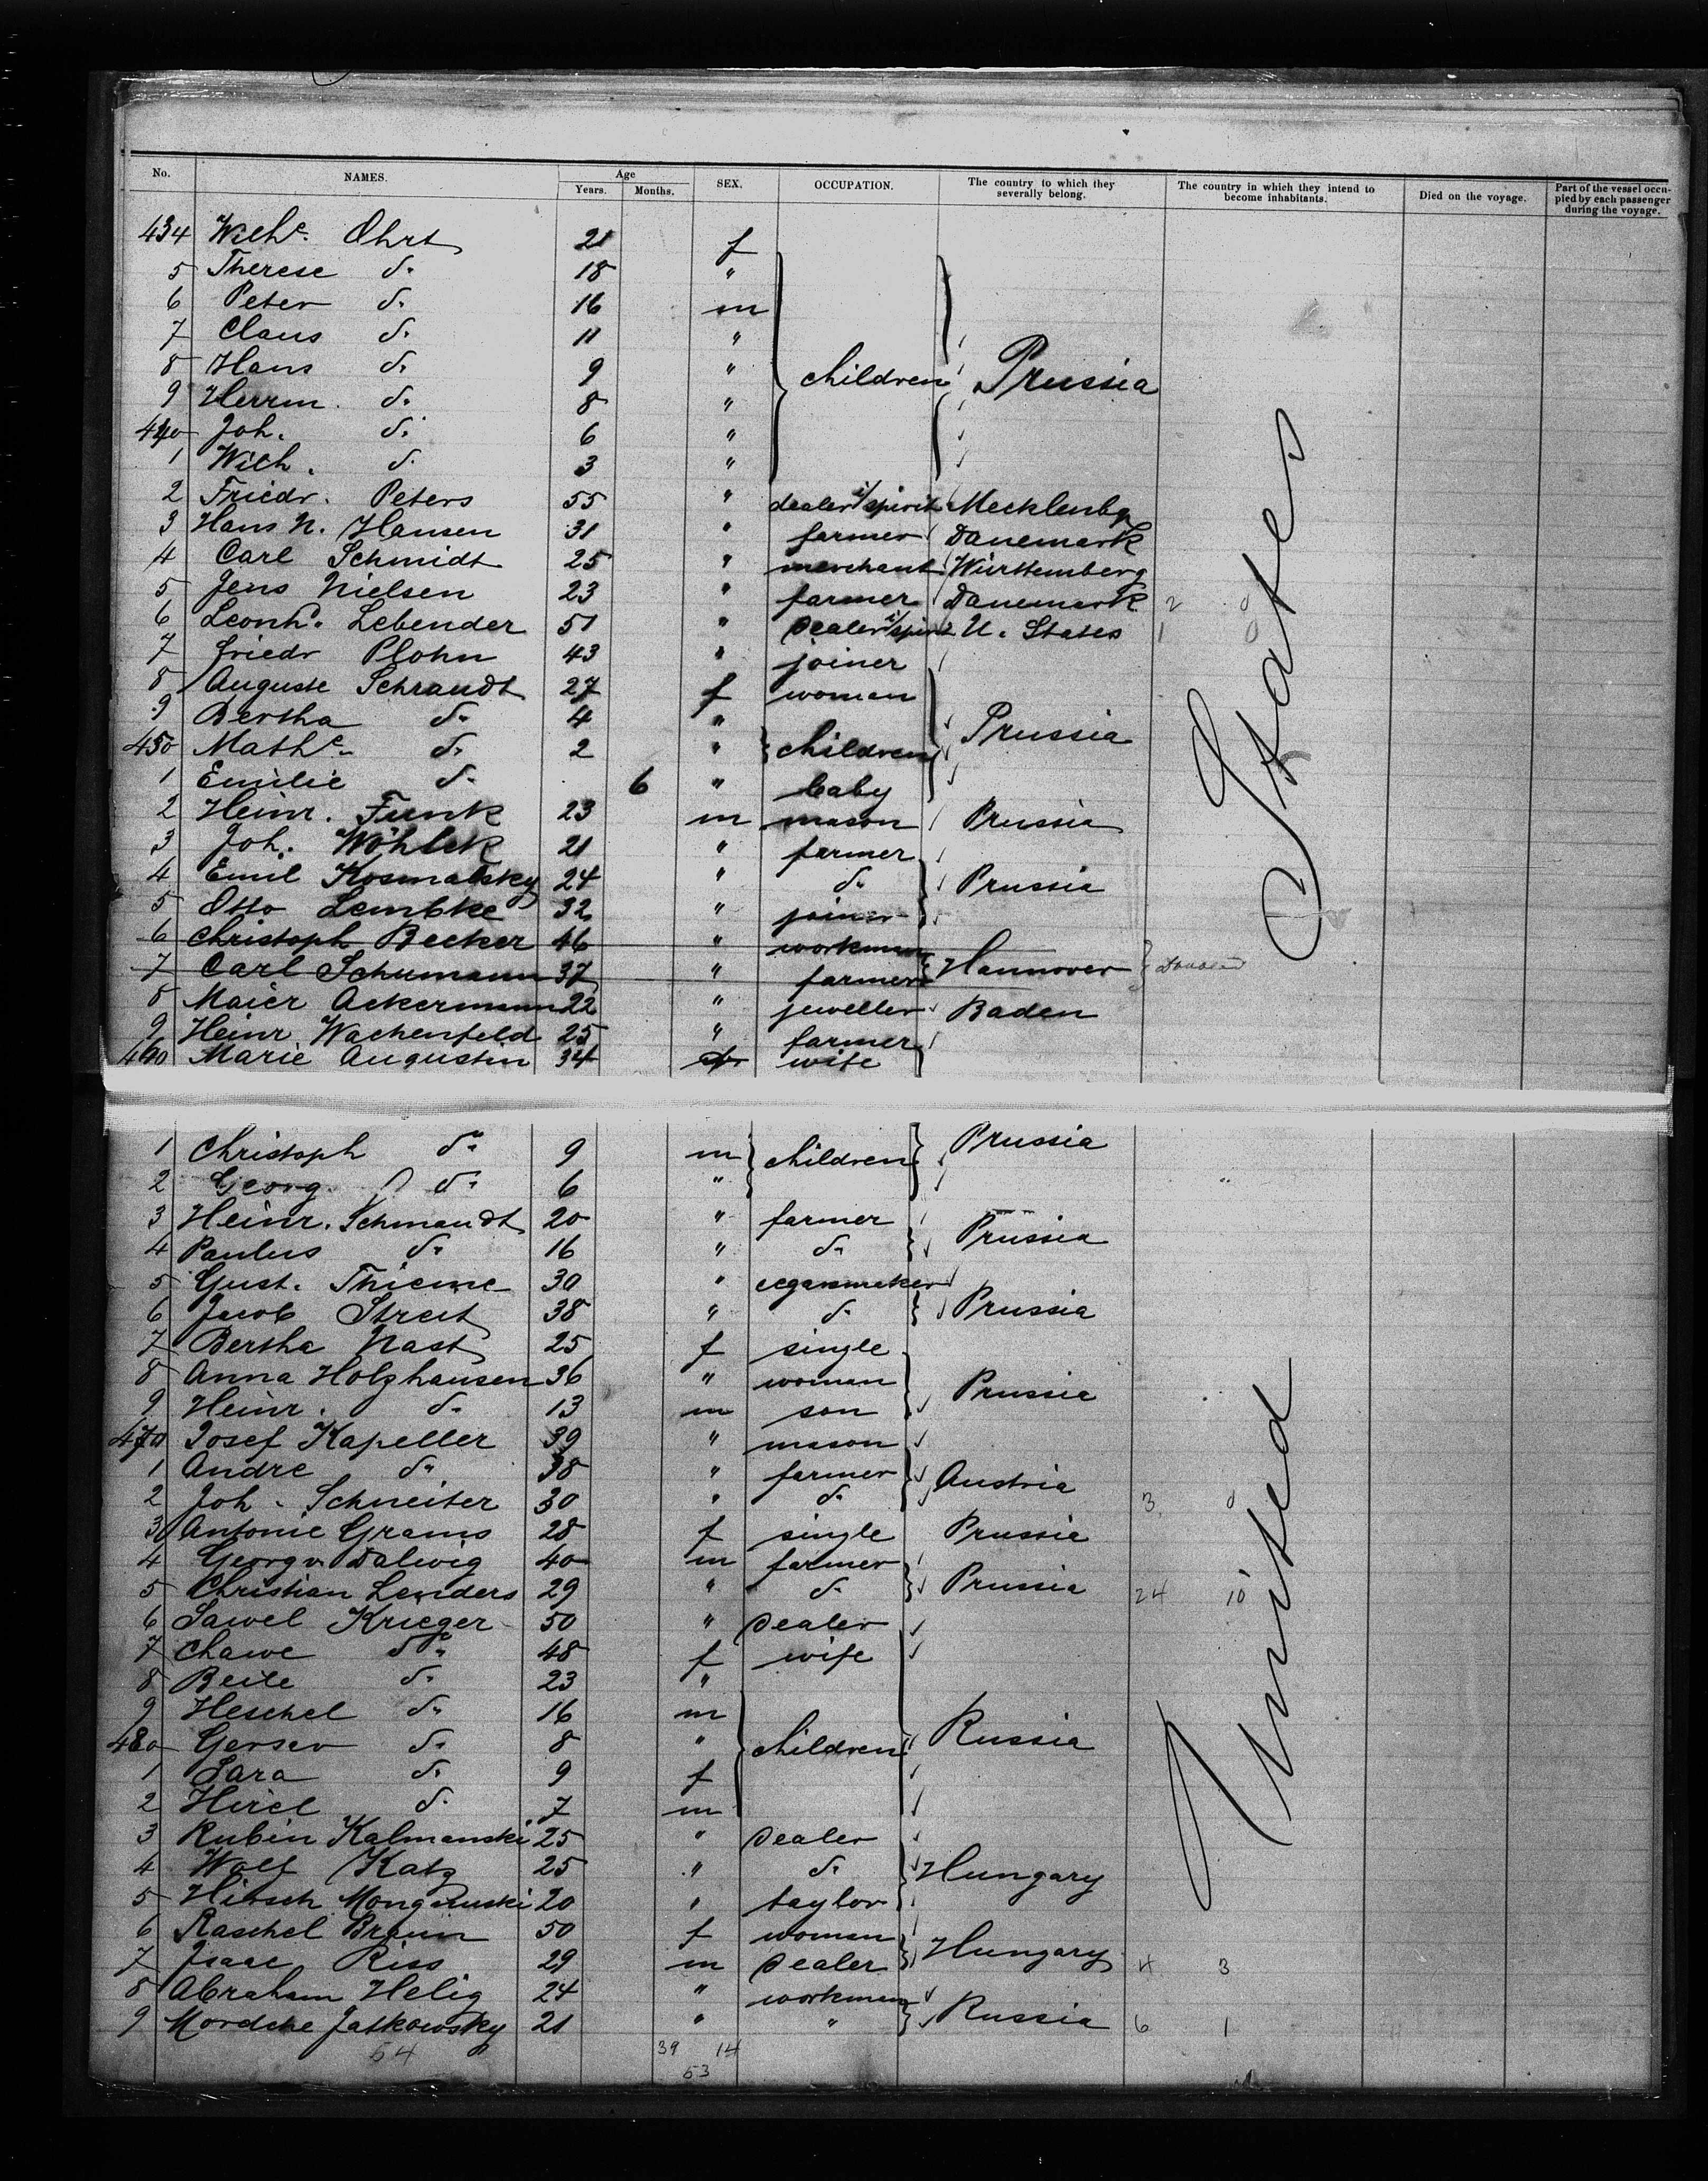 No. NAMES. Age Years. Months. SEX. OCCUPATION. The country to which they severally belong. The country in which they intend to become inhabitants. Died on the voyage. Part of the vessel occupied by each passenger during the voyage.
434 Wilhe. Ohrt 21 f
5 Therese do. 18 "
6 Peter do. 16 m
7 Claus do. 11 "
8 Hans do. 9 " children Prussia
9 Herrm. do. 8 "
440 Joh. do. 6 "
1 Wilh. do. 3 "
2 Friedr. Peters 55 " dealer i/spirit Mecklenbg
3 Hans N. Hansen 31 " farmer Danemark
4 Carl Schmidt 25 " merchant Württemberg
5 Jens Nielsen 23 " farmer Danemark 2 0
6 Leonh. Lebender 51 " dealer i/spirit U. States 1 0
7 Friedr Plohn 43 " joiner
8 Auguste Schrandt 27 f woman
9 Bertha do. 4 " Prussia
450 Mathe. do. 2 " children
1 Emilie do. 6 " baby
2 Heinr. Funk 23 m mason Prussia
3 Joh. Wöhlck 21 " farmer
4 Emil Kosmalsky 24 " do. Prussia
5 Otto Lembke 32 " joiner
6 Christoph Becker 46 " workman
7 Carl Schumann 37 " farmer Hannover
8 Maier Ackermann 22 " jeweller Baden
9 Heinr Wachenfeld 25 " farmer
460 Marie Augustin 34 f wife
1 Christoph do. 9 m children Prussia
2 Georg do. 6 "
3 Heinr. Schmandt 20 " farmer Prussia
4 Paulus do. 16 " do.
5 Gust. Thieme 30 " cegarsmaker
6 Jacob Streit 38 " do. Prussia
7 Bertha Nast 25 f single
8 Anna Holzhausen 36 " woman Prussia
9 Heinr. do. 13 m son
470 Josef Kapeller 39 " mason
1 Andre do. 38 " farmer Austria
2 Joh. Schneiter 30 " do. 3 0
3 Antonie Grams 28 f single Prussia
4 Georg v. Dalwig 40 m farmer
5 Christian Lenders 29 " do. Prussia 24 10
6 Sawel Krieger 50 " dealer
7 Chawe do. 48 f wife
8 Beile do. 23 "
9 Heschel do. 16 m
480 Gerser do. 8 " children Russia
1 Sara do. 9 f
2 Hirel do. 7 m
3 Rubin Kalmanski 25 " dealer
4 Wolf Katz 25 " do. Hungary
5 Hirsch 20 " taylor
6 Raschel Braun 50 f woman
7 Isaac Riss 29 m dealer Hungary 4 3
8 Abraham Helig 24 " workman
9 Mordche Jatkowsky 21 " " Russia 6 1
54 39 14
53
United States